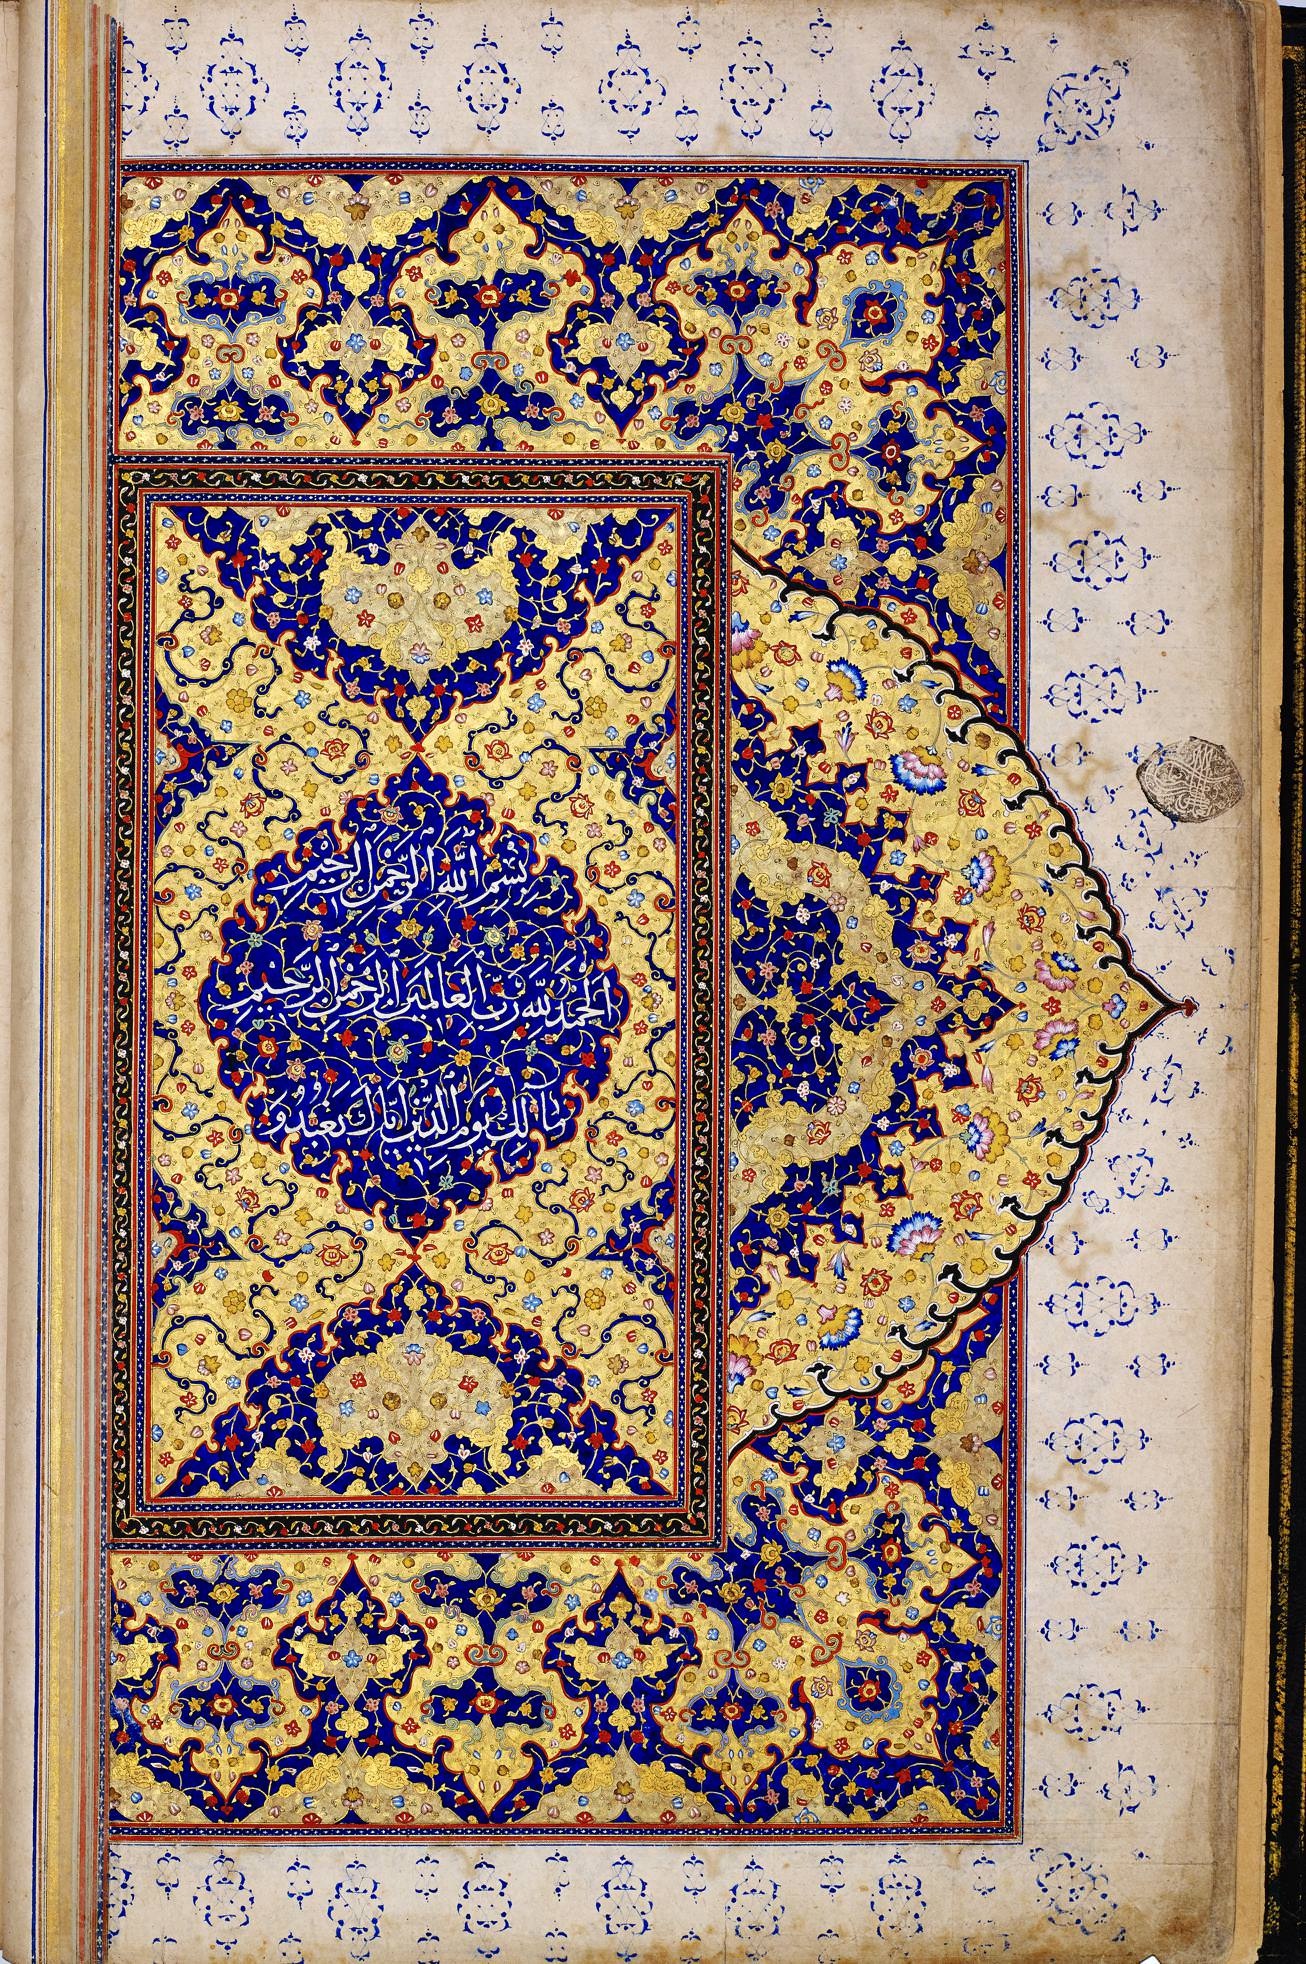 بِسْمِ اللَّهِ الرَّحْمَنِ الرَّحِيْمِ
اَلْحَمْدُ لِلَّهِ رَبِّ الْعَالَمِيْنَ الرَّحْمٰنِ الرَّحِيْمِ
مَالِكِ يَوْمِ الدِّيْنِ اِيَّاكَ نَعْبُدُ وَ